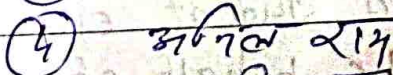 (4) अनिल राम